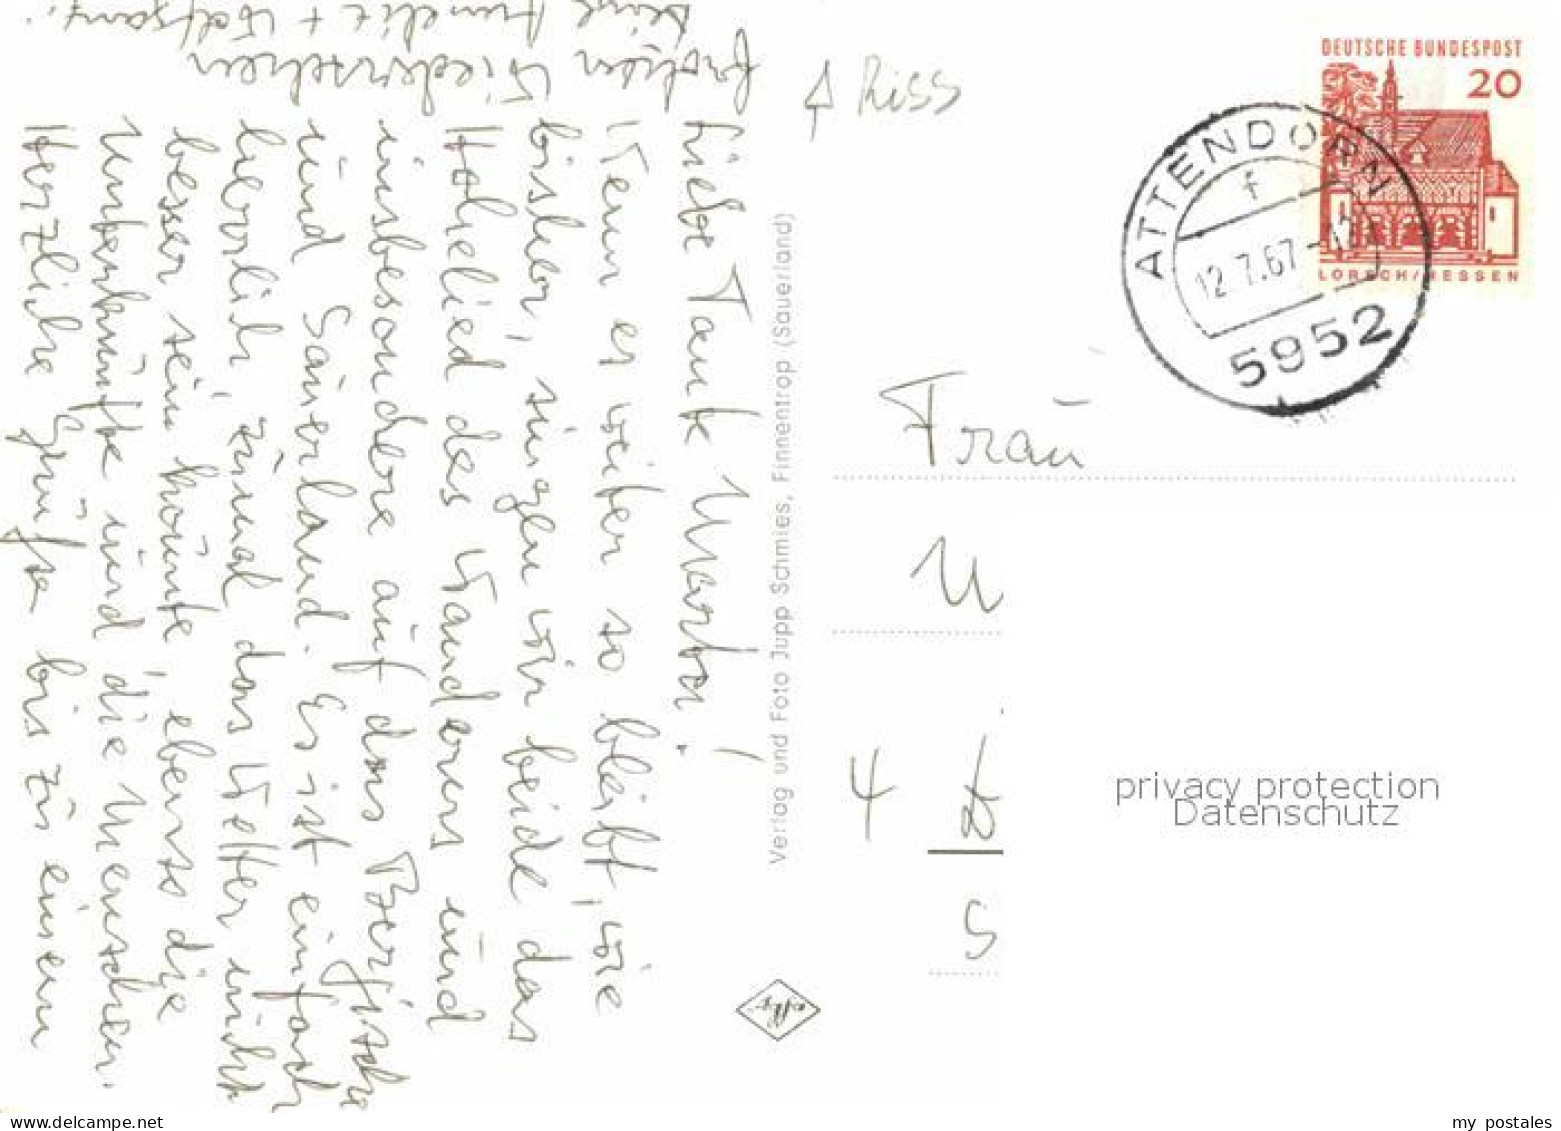 Liebe Tante Marta!
Wenn es weiter so bleibt, wie
bisher, singen wir beide das
Hohelied des Wanderns und
insbesondere auf das Bergische
und Sauerland. Es ist einfach
herrlich, zumal das Wetter nicht
besser sein könnte, ebenso die
Unterkünfte und die Menschen.
Herzliche Grüße bis zu einem
frohen Wiedersehen
Deine + Wolfgang.
Verlag und Foto Jupp Schmies, Finnentrop (Sauerland)
Riss
DEUTSCHE BUNDESPOST
20
LORSCH/HESSEN
ATTENDORN
f
12.7.67-12
5952
Frau
4
privacy protection
Datenschutz
my postales